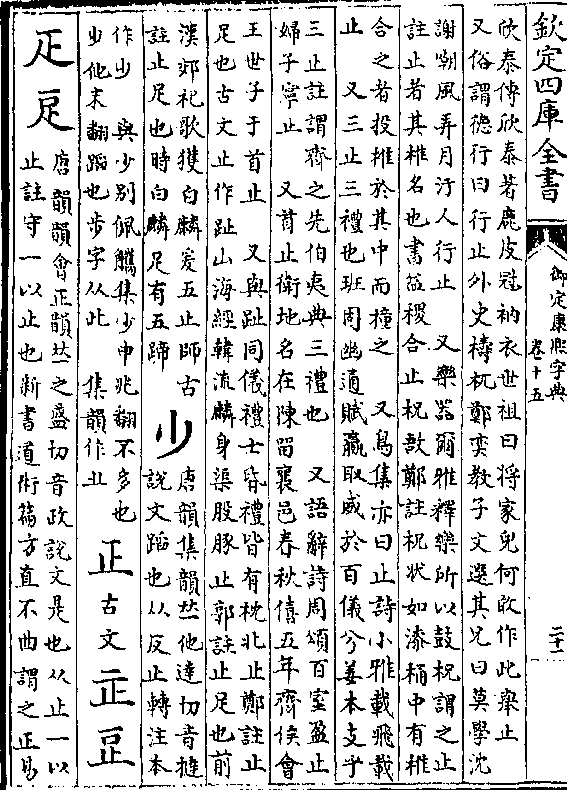 欽定四庫全書
御定康熙字典
卷十五
二十一
欣泰傳欣泰著鹿皮冠衲衣世祖曰将家兒何敢作此舉止
又俗謂徳行曰行止外史檮杌鄭奕教子文選其兄曰莫學沈
謝嘲風弄月汙人行止 又樂器爾雅釋樂所以鼓柷謂之止
註止者其椎名也書益稷合止柷敔鄭註柷状如漆桶中有椎
合之者投椎於其中而撞之 又鳥集亦曰止詩小雅載飛載
止 又三止三禮也班固幽通賦嬴取威於百儀兮姜本支乎
三止註謂齊之先伯夷典三禮也 又語辭詩周頌百室盈止
婦子寧止 又首止衛地名在陳留襄邑春秋僖五年齊侯會
王世子于首止 又與趾同儀禮士昏禮皆有枕北止鄭註止
足也古文止作趾山海經韓流麟身渠股豚止郭註止足也前
漢郊祀歌獲白麟爰五止師古
註止足也時白麟足有五蹄
少
唐韻集韻𠀤他達切音撻
說文蹈也从反止轉注本
作少 與少别佩觿集少中兆翻不多也
少他末翻蹈也步字从此 集韻作㐀
正 古文
唐韻韻會正韻𠀤之盛切音政說文是也从止一以
止註守一以止也新書道術篇方直不曲謂之正易